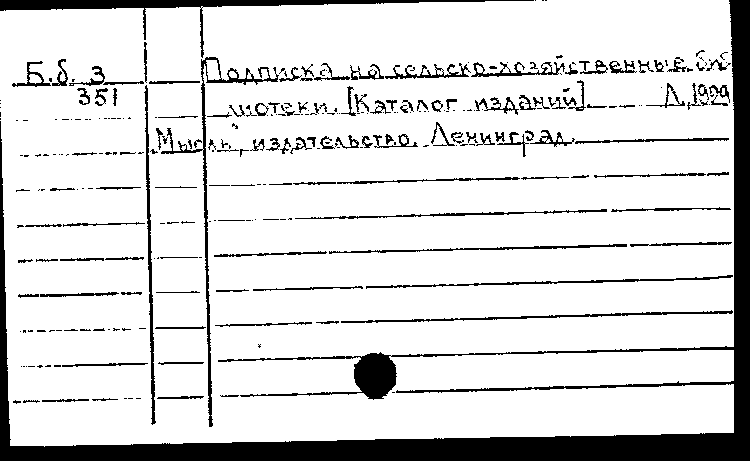 Б.б. 3
351
Подписка на сельско-хозяйственные биб
лиотеки. [Каталог изданий]. Л, 1929
"Мысль", издательство. Ленинград.